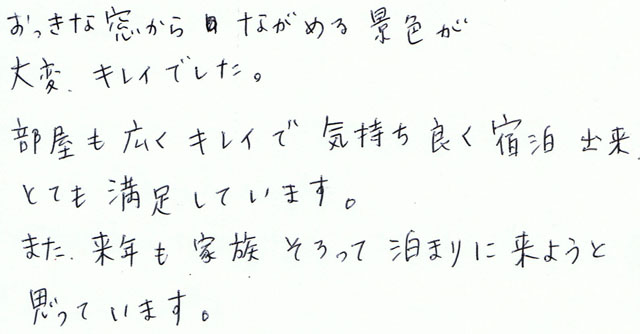 おっきな窓から ながめる 景色が
大変、キレイでした。
部屋も広くキレイで 気持ち良く宿泊出来、
とても満足しています。
また、来年も家族そろって泊まりに来ようと
思っています。